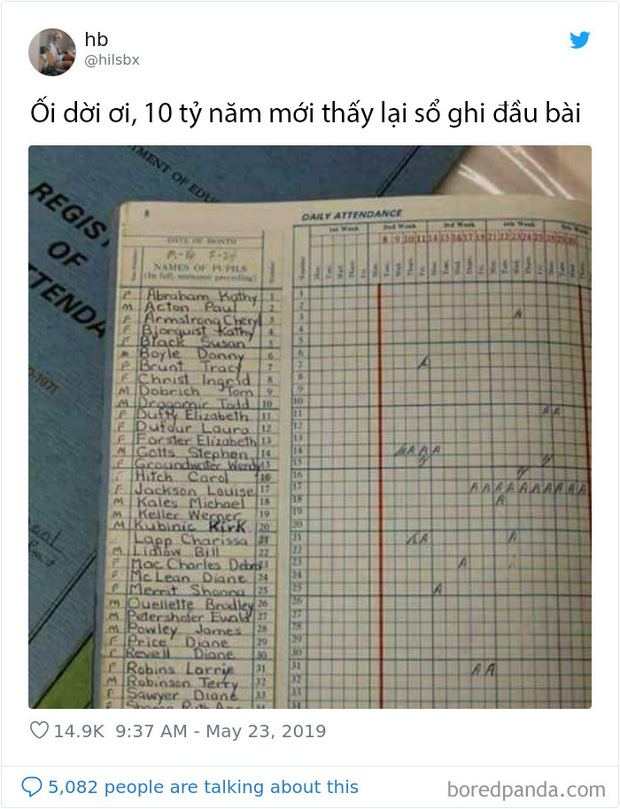 hb
@hilsbx
Ối dời ơi, 10 tỷ năm mới thấy lại sổ ghi đầu bài
MENT OF EDU
REGIS
OF
TTENDA
-1971
8
DAILY ATTENDANCE
DATE OF MONTH
1st Week 2nd Week 3rd Week 4th Week 5th Week
NAMES OF PUPILS
(In full, surname preceding)
F Abraham Kathy 1
M Acton Paul 2
F Armstrong Cheryl 3
F Bjorquist Kathy 4
F Black Susan 5
M Boyle Danny 6
F Brunt Tracy 7
F Christ Ingrid 8
M Dobrich Tom 9
M Dragomir Todd 10
F Duffy Elizabeth 11
F Dufour Laura 12
F Forster Elizabeth 13
M Gotts Stephen 14
F Groundwater Wendy 15
Hitch Carol 16
F Jackson Louise 17
M Kales Michael 18
M Keller Werner 19
M Kubinic Kirk 20
Lapp Charissa 21
M Lidlow Bill 22
F Mac Charles Debra 23
F Mc Lean Diane 24
F Merrit Shanna 25
M Ouellette Bradley 26
M Petershofer Ewald 27
M Powley James 28
F Price Diane 29
F Revell Diane 30
F Robins Lorrie 31
M Robinson Terry 32
F Sawyer Diane 33
14.9K 9:37 AM - May 23, 2019
5,082 people are talking about this
boredpanda.com